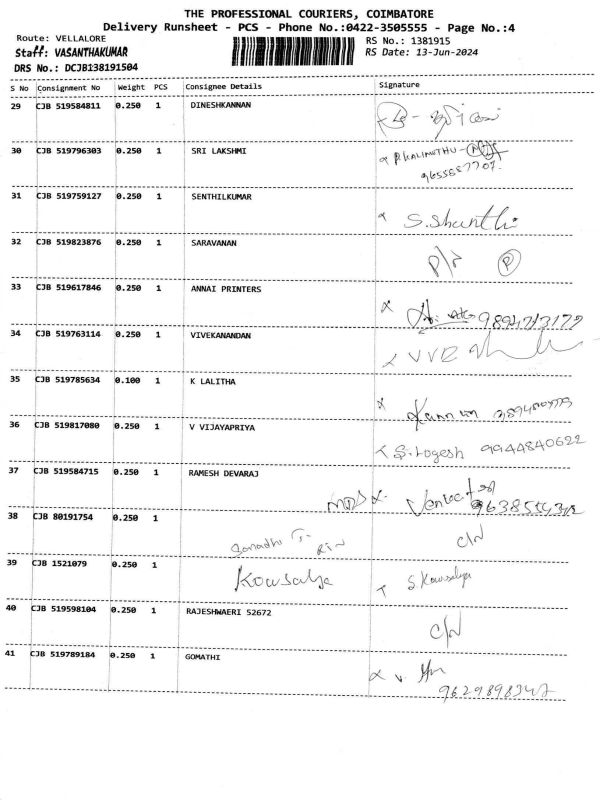 THE PROFESSIONAL COURIERS, COIMBATORE
Delivery Runsheet - PCS - Phone No.:0422-3505555 - Page No.:4
Route: VELLALORE
RS No.: 1381915
Staff: VASANTHAKUMAR
RS Date: 13-Jun-2024
DRS No.: DCJB138191504
S No Consignment No Weight PCS Consignee Details Signature
29 CJB 519584811 0.250 1 DINESHKANNAN
30 CJB 519796303 0.250 1 SRI LAKSHMI
31 CJB 519759127 0.250 1 SENTHILKUMAR S.Shanthi
32 CJB 519823876 0.250 1 SARAVANAN P
33 CJB 519617846 0.250 1 ANNAI PRINTERS
34 CJB 519763114 0.250 1 VIVEKANANDAN
35 CJB 519785634 0.100 1 K LALITHA
36 CJB 519817080 0.250 1 V VIJAYAPRIYA S.Logesh 9944840622
37 CJB 519584715 0.250 1 RAMESH DEVARAJ
38 CJB 80191754 0.250 1 C/N
39 CJB 1521079 0.250 1 Kowsalya S.Kowsalya
40 CJB 519598104 0.250 1 RAJESHWAERI 52672 C/N
41 CJB 519789184 0.250 1 GOMATHI